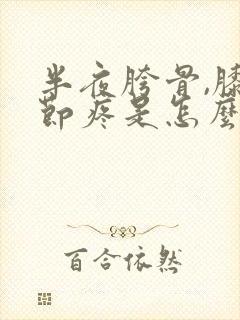 半夜胯骨,膝
節疼是怎麼
百合依然